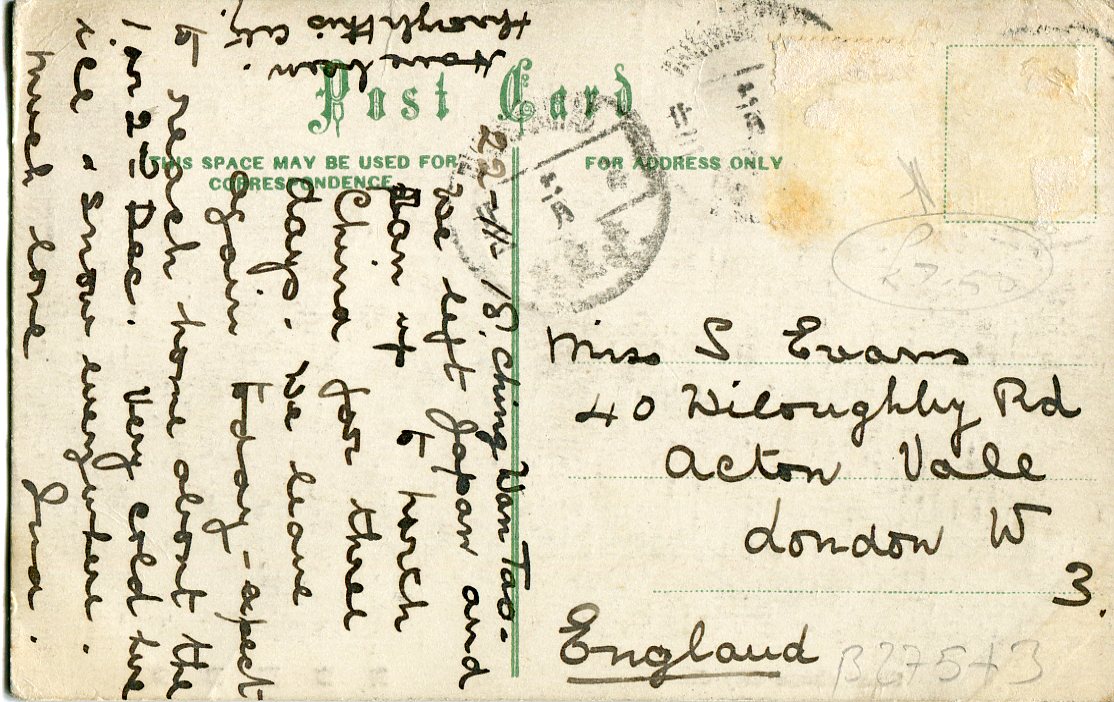 Post Card
THIS SPACE MAY BE USED FOR
CORRESPONDENCE
FOR ADDRESS ONLY
22-11-18. Ching Wan Tao.
We left Japan and
ran up to North
China for three
days. We leave
again today - expect
to reach home about the
1 or 2nd Dec. Very cold here
ice & snow everywhere.
much love
through this city.
Miss S Evans
40 Wiloughby Rd
Acton Vale
London W
3.
England
£7.50
B27543